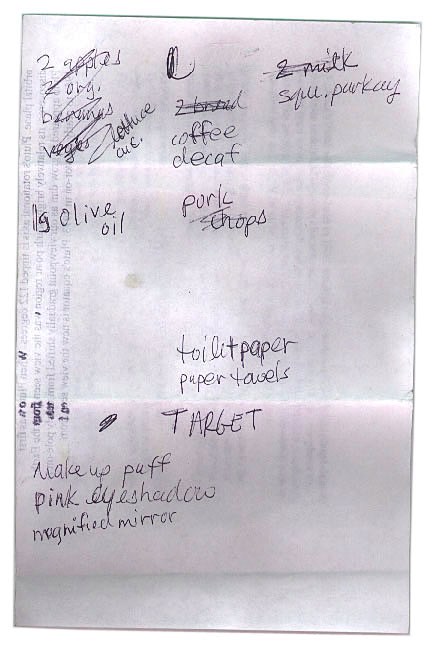 2 apples
2 org.
bananas
veges
lettuce
cuc.
lg olive
oil
L
2 bread
coffee
decaf
pork
chops
toilitpaper
paper towels
2 milk
sque. parkay
TARGET
Make up puff
pink eyeshadow
magnified mirror